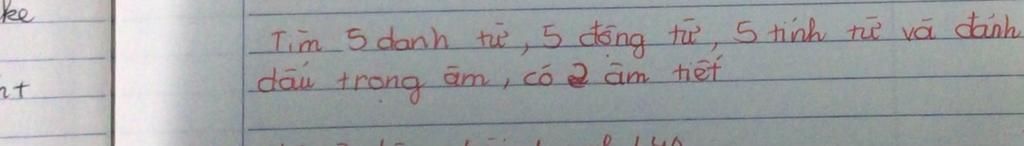 ke
Tìm 5 danh từ, 5 động từ, 5 tính từ và đánh
nt
dấu trọng âm, có 2 âm tiết